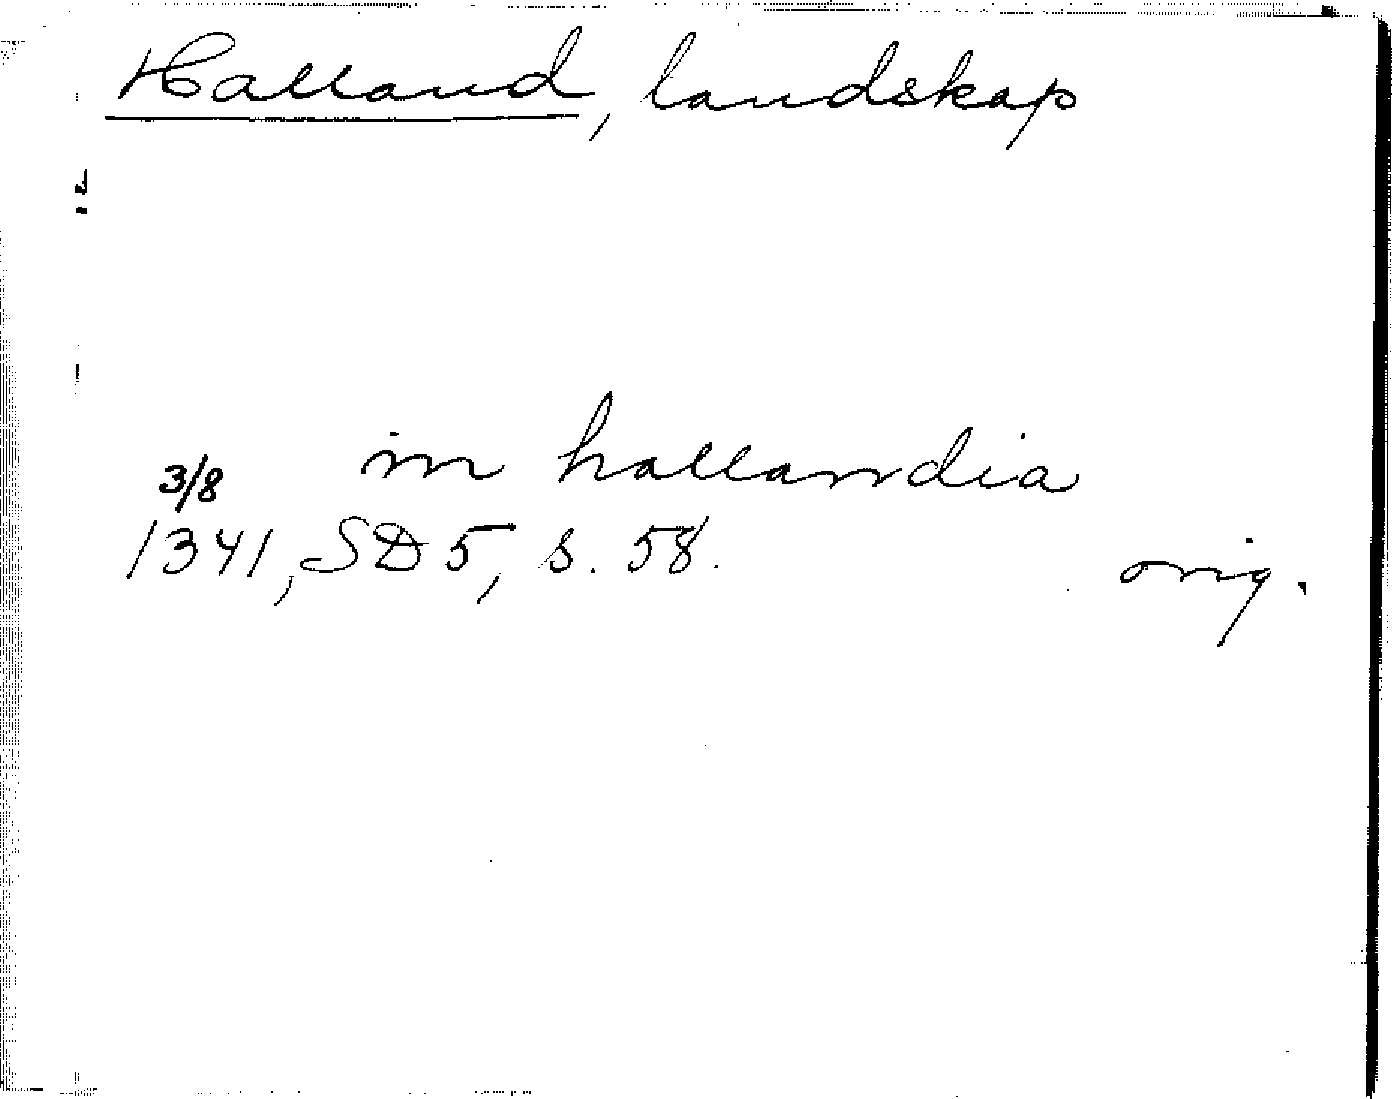 Halland, landskap
in hallandia
3/8
1341, SD 5, s. 58.
orig.